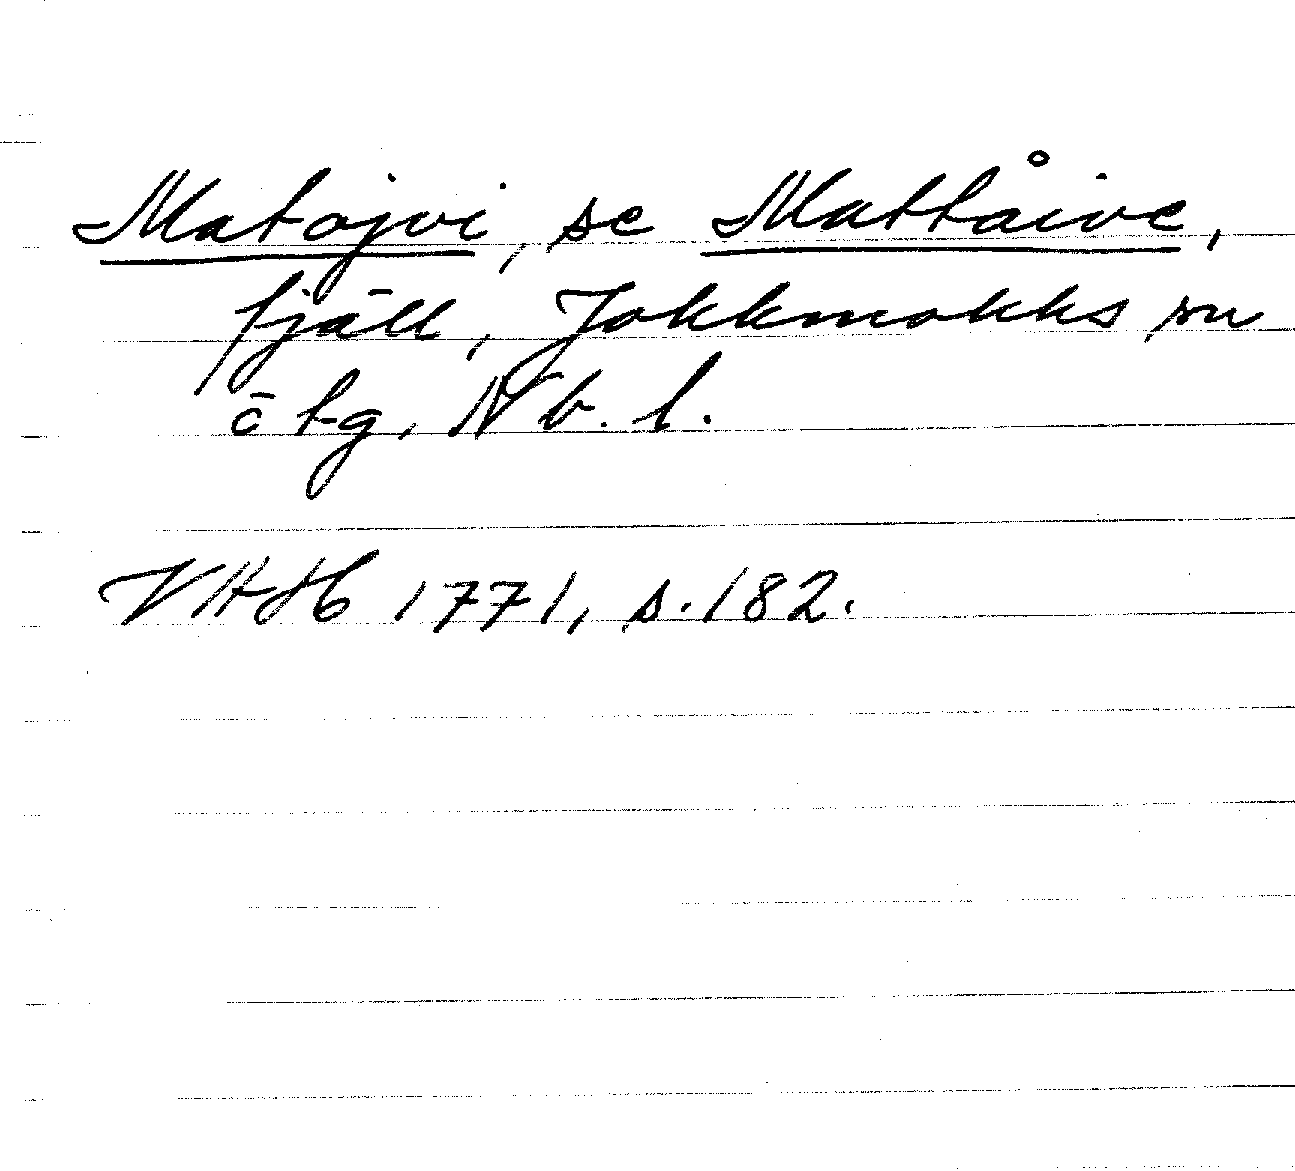 Matojvi, se Mattåive,
fjäll, Jokkmokks sn
ö tg, Nb. l.
VAH 1771, s. 182.